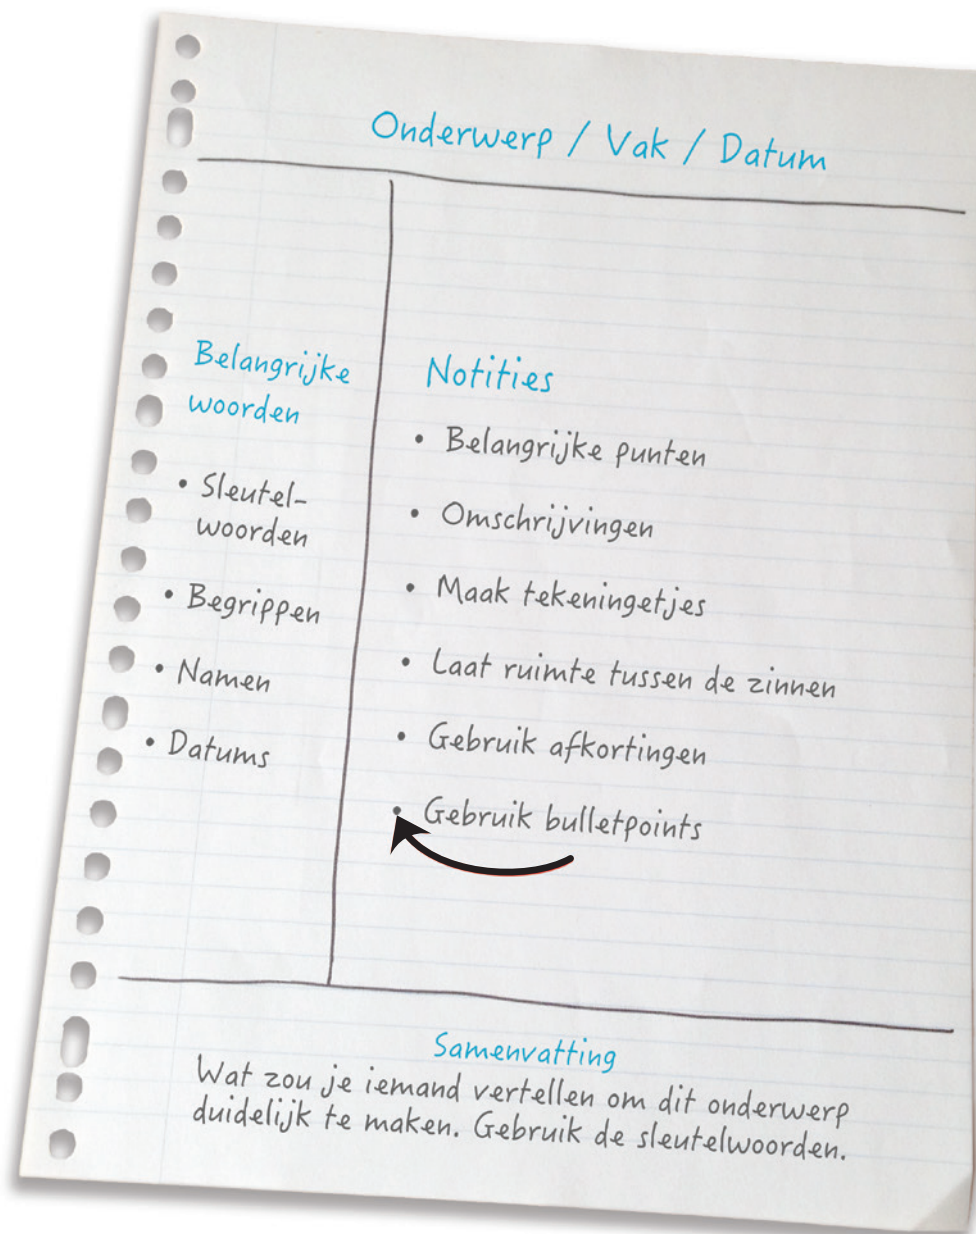 Onderwerp / Vak / Datum
Belangrijke
woorden
• Sleutel-
woorden
• Begrippen
• Namen
• Datums
Notities
• Belangrijke punten
• Omschrijvingen
• Maak tekeningetjes
• Laat ruimte tussen de zinnen
• Gebruik afkortingen
• Gebruik bulletpoints
Samenvatting
Wat zou je iemand vertellen om dit onderwerp
duidelijk te maken. Gebruik de sleutelwoorden.